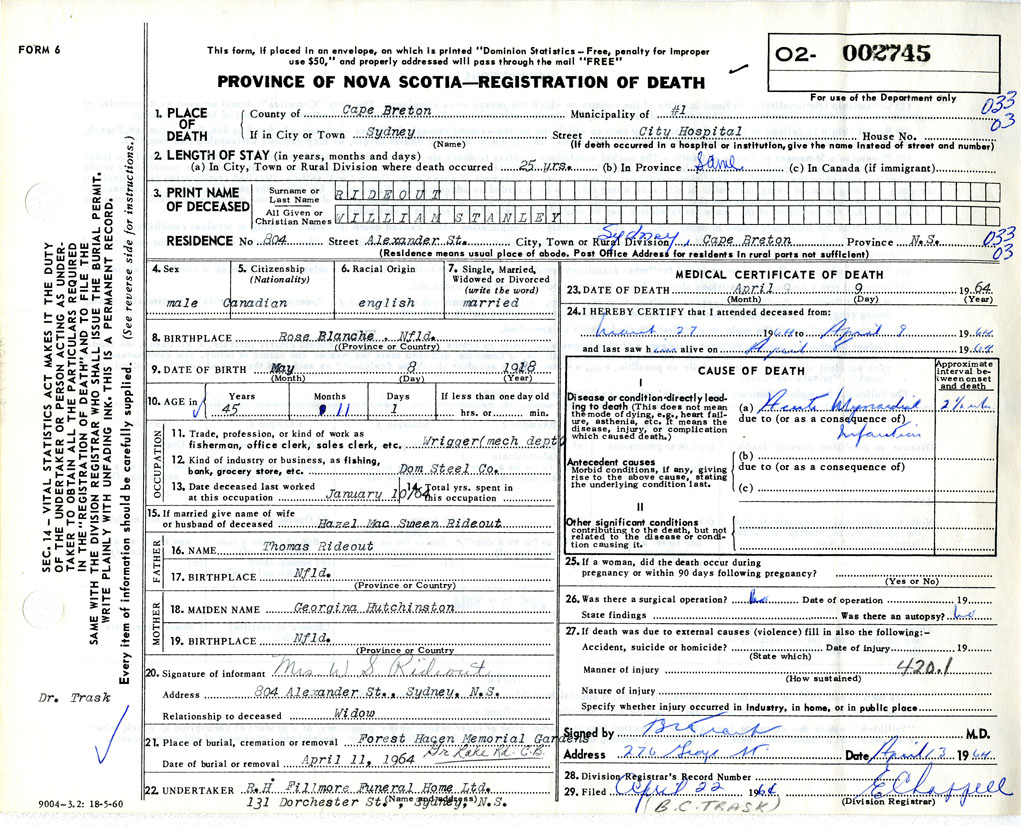 FORM 6
This form, if placed in an envelope, on which is printed "Dominion Statistics – Free, penalty for improper
use $50," and properly addressed will pass through the mail "FREE"
PROVINCE OF NOVA SCOTIA—REGISTRATION OF DEATH
O2- 002745
For use of the Department only
033
03
1. PLACE OF DEATH
County of Cape Breton Municipality of #1
If in City or Town Sydney Street City Hospital House No.
(Name) (If death occurred in a hospital or institution, give the name instead of street and number)
2. LENGTH OF STAY (in years, months and days)
(a) In City, Town or Rural Division where death occurred 25 yrs. (b) In Province Same (c) In Canada (if immigrant)
3. PRINT NAME OF DECEASED
Surname or Last Name RIDEOUT
All Given or Christian Names WILLIAM STANLEY
RESIDENCE No. 804 Street Alexander St. City, Town or Rural Division Sydney, Cape Breton Province N.S.
033
03
(Residence means usual place of abode. Post Office Address for residents in rural parts not sufficient)
4. Sex
male
5. Citizenship
(Nationality)
Canadian
6. Racial Origin
english
7. Single, Married,
Widowed or Divorced
(write the word)
married
8. BIRTHPLACE Rose Blanche . Nfld.
(Province or Country)
9. DATE OF BIRTH May 8 1918
(Month) (Day) (Year)
10. AGE in
Years Months Days If less than one day old
45 11 1 hrs. or min.
OCCUPATION
11. Trade, profession, or kind of work as
fisherman, office clerk, sales clerk, etc. Wrigger(mech dept)
12. Kind of industry or business, as fishing,
bank, grocery store, etc. Dom Steel Co.
13. Date deceased last worked
at this occupation January 10/64
14. Total yrs. spent in
this occupation
15. If married give name of wife
or husband of deceased Hazel Mac Sween Rideout
FATHER
16. NAME Thomas Rideout
17. BIRTHPLACE Nfld.
(Province or Country)
MOTHER
18. MAIDEN NAME Georgina Hutchinston
19. BIRTHPLACE Nfld.
(Province or Country)
20. Signature of informant Mrs. W S Rideout
Address 804 Alexander St., Sydney, N.S.
Relationship to deceased Widow
21. Place of burial, cremation or removal Forest Hagen Memorial Gardens
Gr. Lake Rd. C.B.
Date of burial or removal April 11, 1964
22. UNDERTAKER B.H Fillmore Funeral Home Ltd.
(Name and address)
131 Dorchester St., Sydney, N.S.
MEDICAL CERTIFICATE OF DEATH
23. DATE OF DEATH April 9 1964
(Month) (Day) (Year)
24. I HEREBY CERTIFY that I attended deceased from:
27 1964 to April 9 1964
and last saw him alive on April 8 1964
CAUSE OF DEATH
Approximate
interval be-
tween onset
and death
I
Disease or condition directly lead-
ing to death (This does not mean
the mode of dying, e.g., heart fail-
ure, asthenia, etc. It means the
disease, injury, or complication
which caused death.)
(a) Acute Myocardial 2½ wk
due to (or as a consequence of)
Infarction
Antecedent causes
Morbid conditions, if any, giving
rise to the above cause, stating
the underlying condition last.
(b)
due to (or as a consequence of)
(c)
II
Other significant conditions
contributing to the death, but not
related to the disease or condi-
tion causing it.
25. If a woman, did the death occur during
pregnancy or within 90 days following pregnancy?
(Yes or No)
26. Was there a surgical operation? no Date of operation 19
State findings Was there an autopsy? no
27. If death was due to external causes (violence) fill in also the following:–
Accident, suicide or homicide? Date of injury 19
(State which)
Manner of injury 420.1
(How sustained)
Nature of injury
Specify whether injury occurred in industry, in home, or in public place
Signed by B C Trask M.D.
Address 276 George St. Date April 13 1964
28. Division Registrar's Record Number
29. Filed April 22 1964 E Chappell
(B.C. TRASK) (Division Registrar)
SEC. 14 – VITAL STATISTICS ACT MAKES IT THE DUTY
OF THE UNDERTAKER OR PERSON ACTING AS UNDER-
TAKER TO OBTAIN ALL THE PARTICULARS REQUIRED
IN THE "REGISTRATION OF DEATH" AND TO FILE THE
SAME WITH THE DIVISION REGISTRAR WHO SHALL ISSUE THE BURIAL PERMIT.
WRITE PLAINLY WITH UNFADING INK. THIS IS A PERMANENT RECORD.
Every item of information should be carefully supplied. (See reverse side for instructions.)
Dr. Trask
9004–3.2: 18-5-60